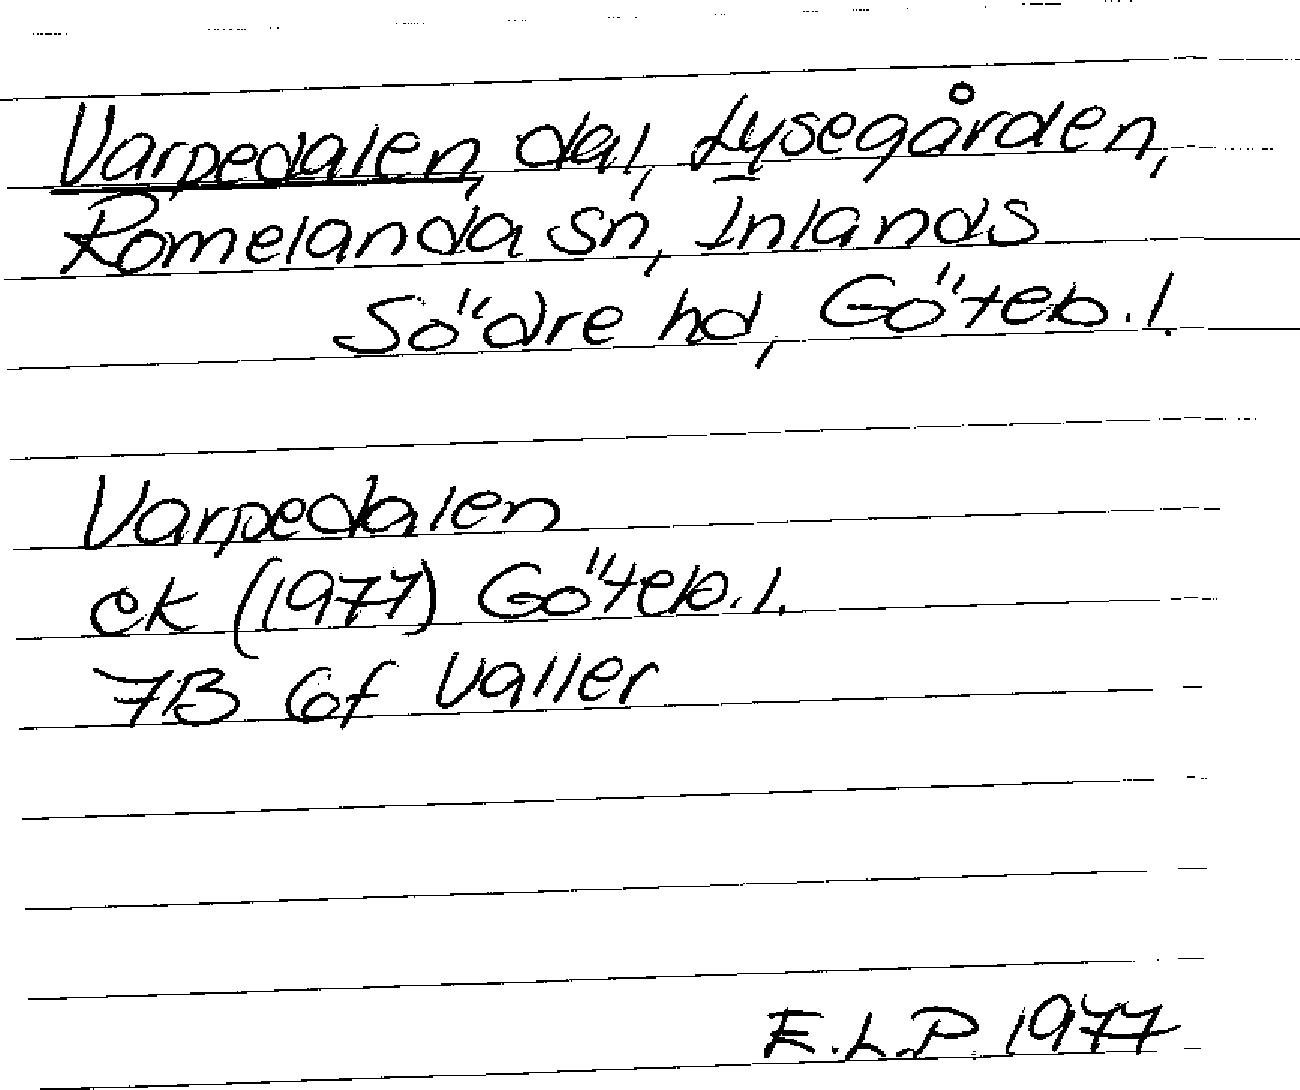 Varpedalen, dal, Lysegården,
Romelanda sn, Inlands
Södre hd, Göteb. l.
Varpedalen
ek (1977) Göteb. l.
7B 6f Valler
E.L.P. 1977